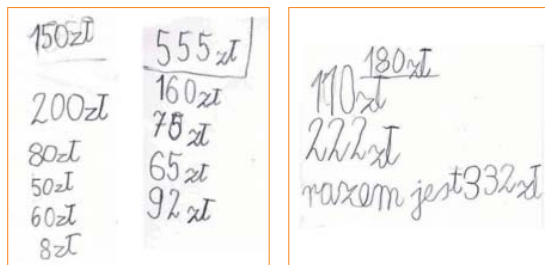 150zł
200zł
80zł
50zł
60zł
8zł
555zł
160zł
75zł
65zł
92zł
180zł
110zł
222zł
razem jest 332zł